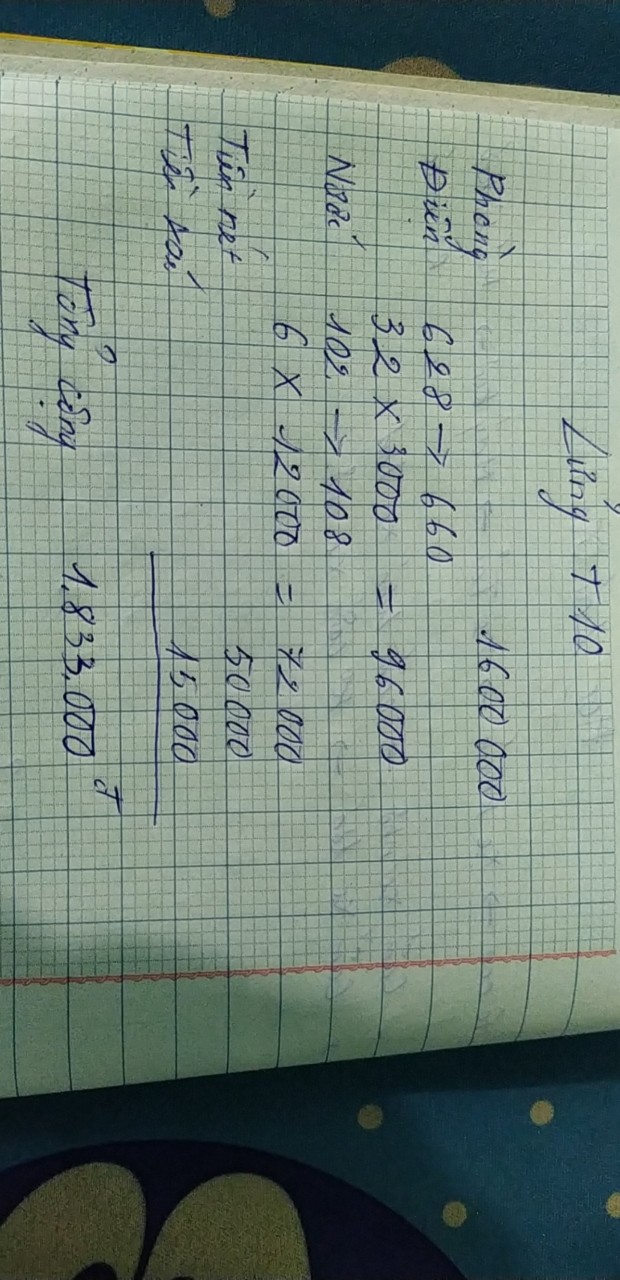 Lửng T10
Phòng 1600 000
Điện 628 → 660
32 x 3000 = 96000
Nước 102 → 108
6 x 12000 = 72000
Tiền nét 50000
Tiền rác 15000
Tổng cộng 1.833.000 đ